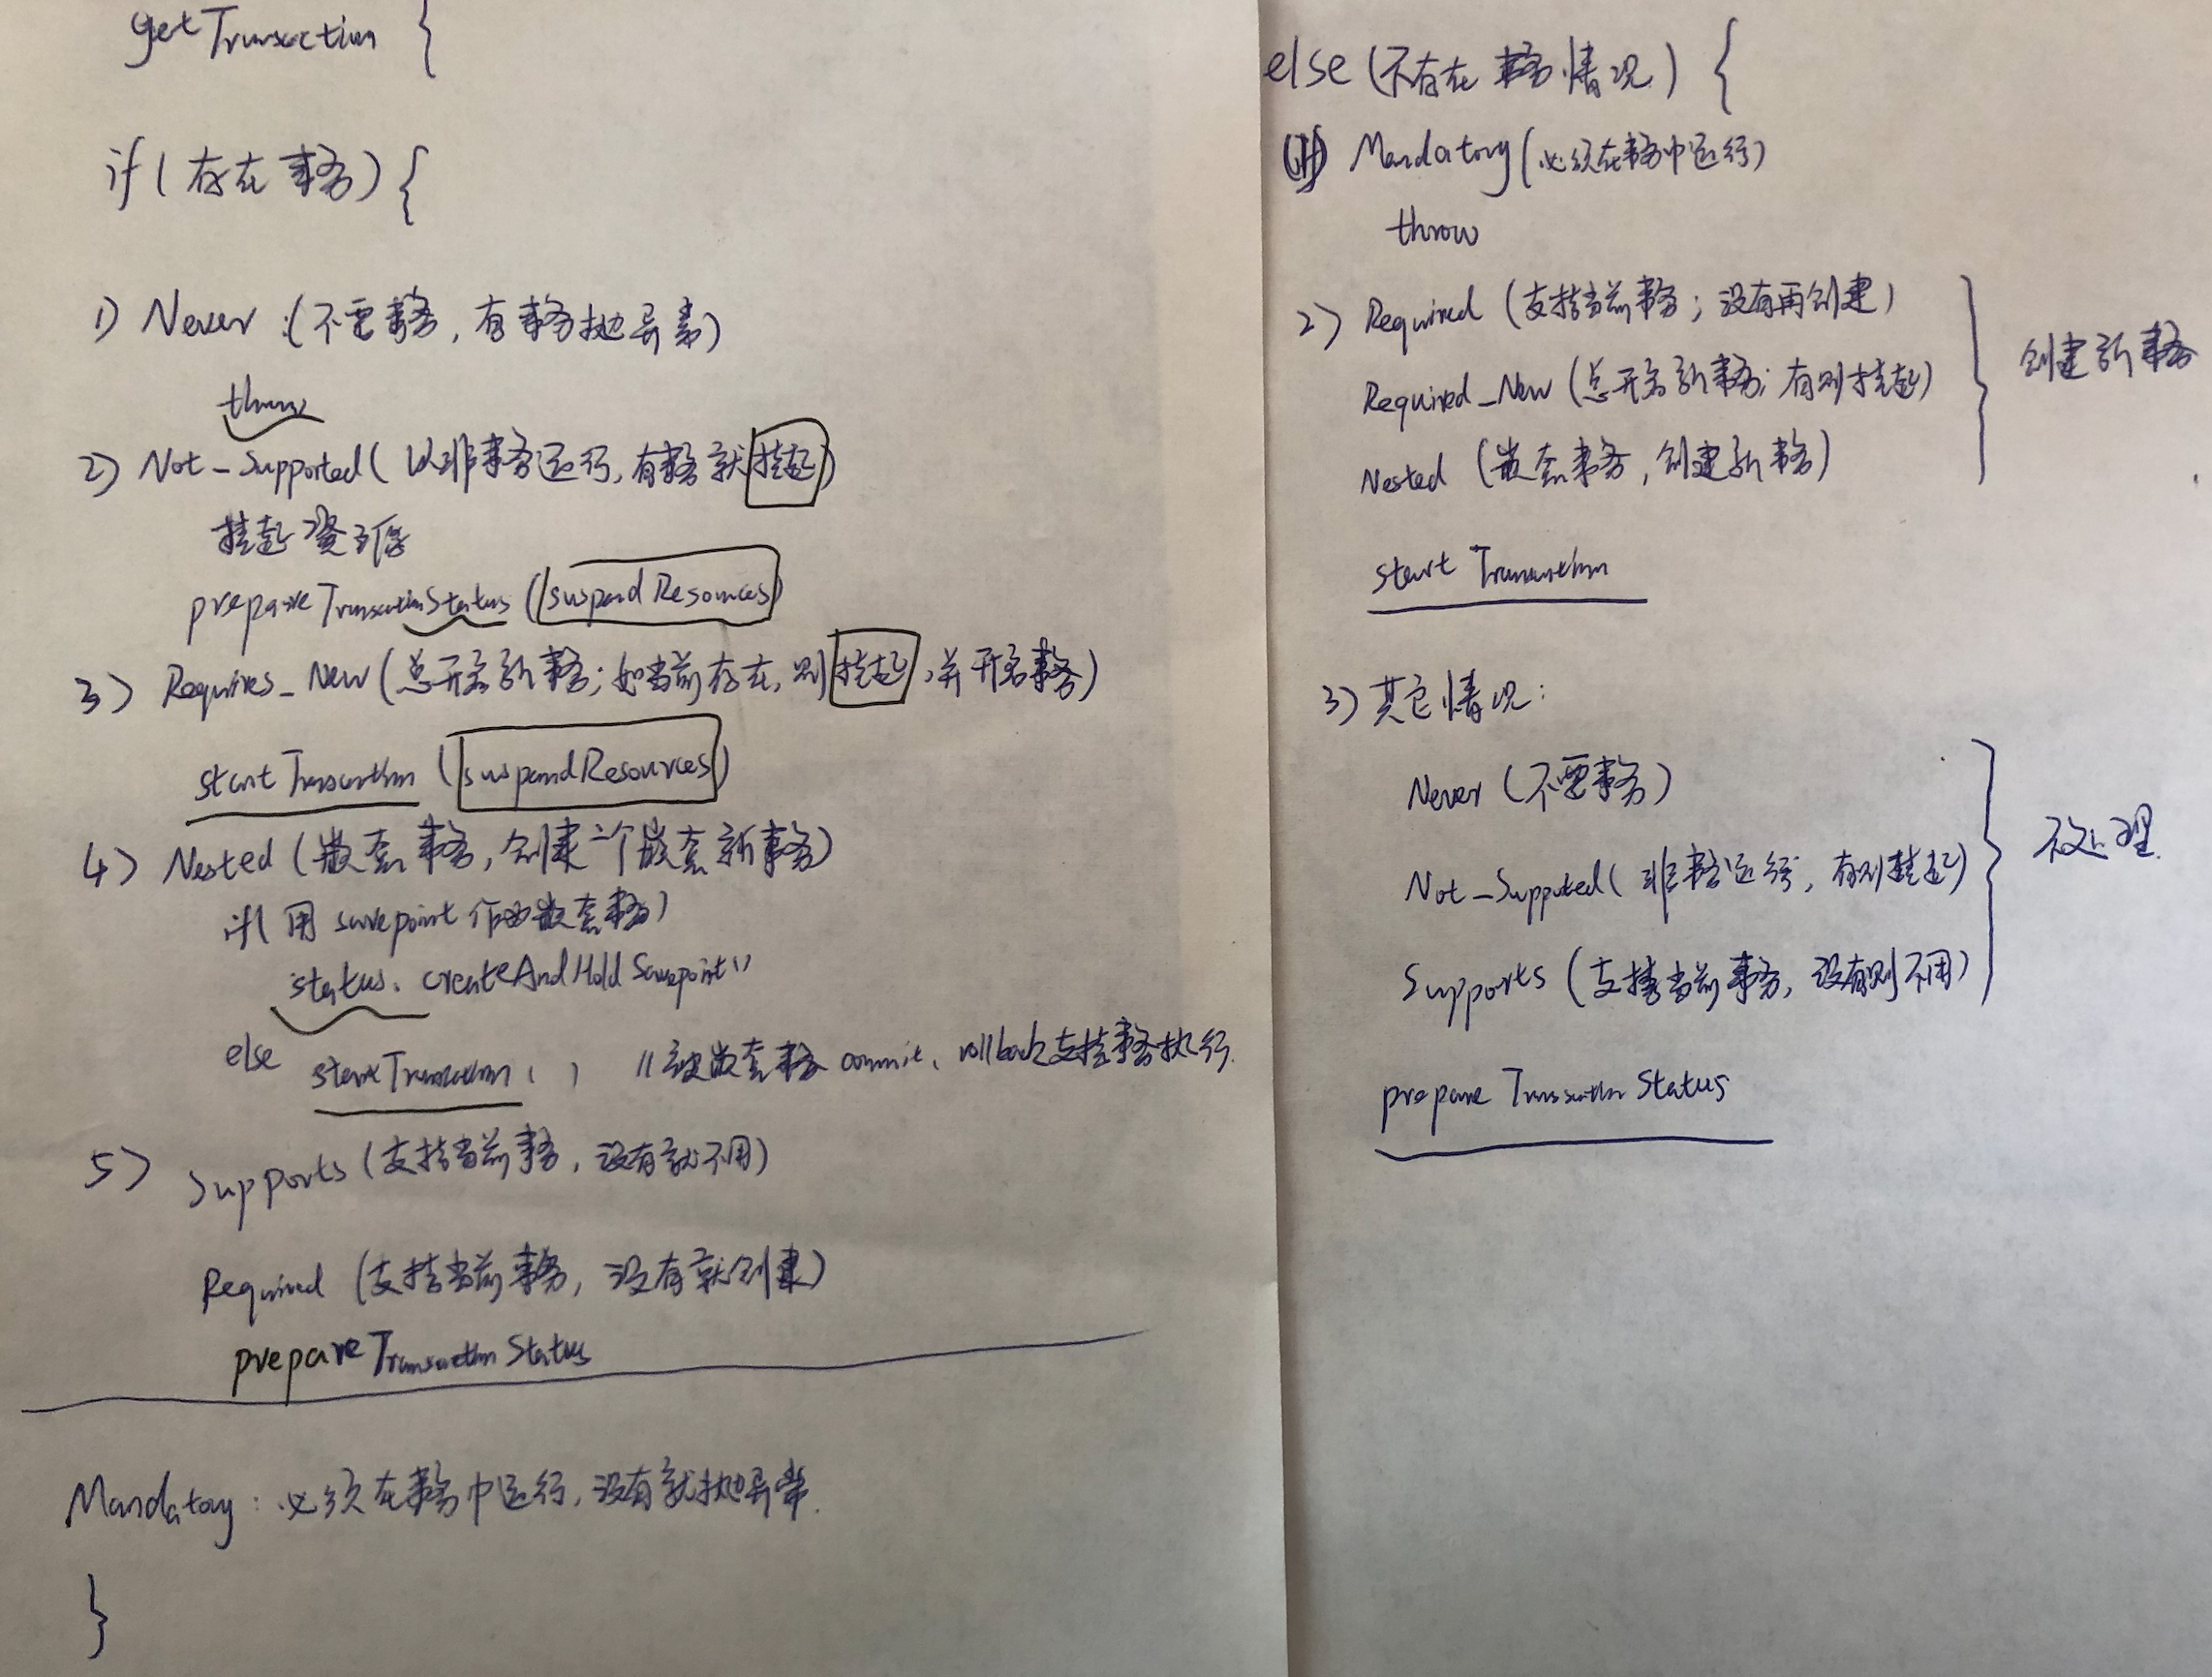 getTransaction {
if (存在事务) {
1) Never (不要事务, 有事务抛异常)
throw
2) Not_Supported ( 以非事务运行, 有事务就挂起)
挂起资源
prepareTransactionStatus (suspendResources)
3) Requires_New (总开启新事务; 如当前存在, 则挂起, 并开启事务)
startTransaction (suspendResources)
4) Nested (嵌套事务, 创建一个嵌套新事务)
if( 用 savepoint 作为嵌套事务)
status. createAndHoldSavepoint()
else startTransaction ( ) // 被嵌套事务 commit、rollback 支持事务执行.
5) Supports (支持当前事务, 没有就不用)
Required (支持当前事务, 没有就创建)
prepareTransactionStatus
Mandatory: 必须在事务中运行, 没有就抛异常.
}
else (不存在事务情况) {
Mandatory (必须在事务中运行)
throw
2) Required (支持当前事务; 没有再创建)
Required_New (总开启新事务; 有则挂起)
创建新事务
Nested (嵌套事务, 创建新事务)
start Transaction
3) 其它情况:
Never (不要事务)
Not_Supported ( 非事务运行, 有则挂起)
不处理.
Supports (支持当前事务, 没有则不用)
prepare Transaction Status